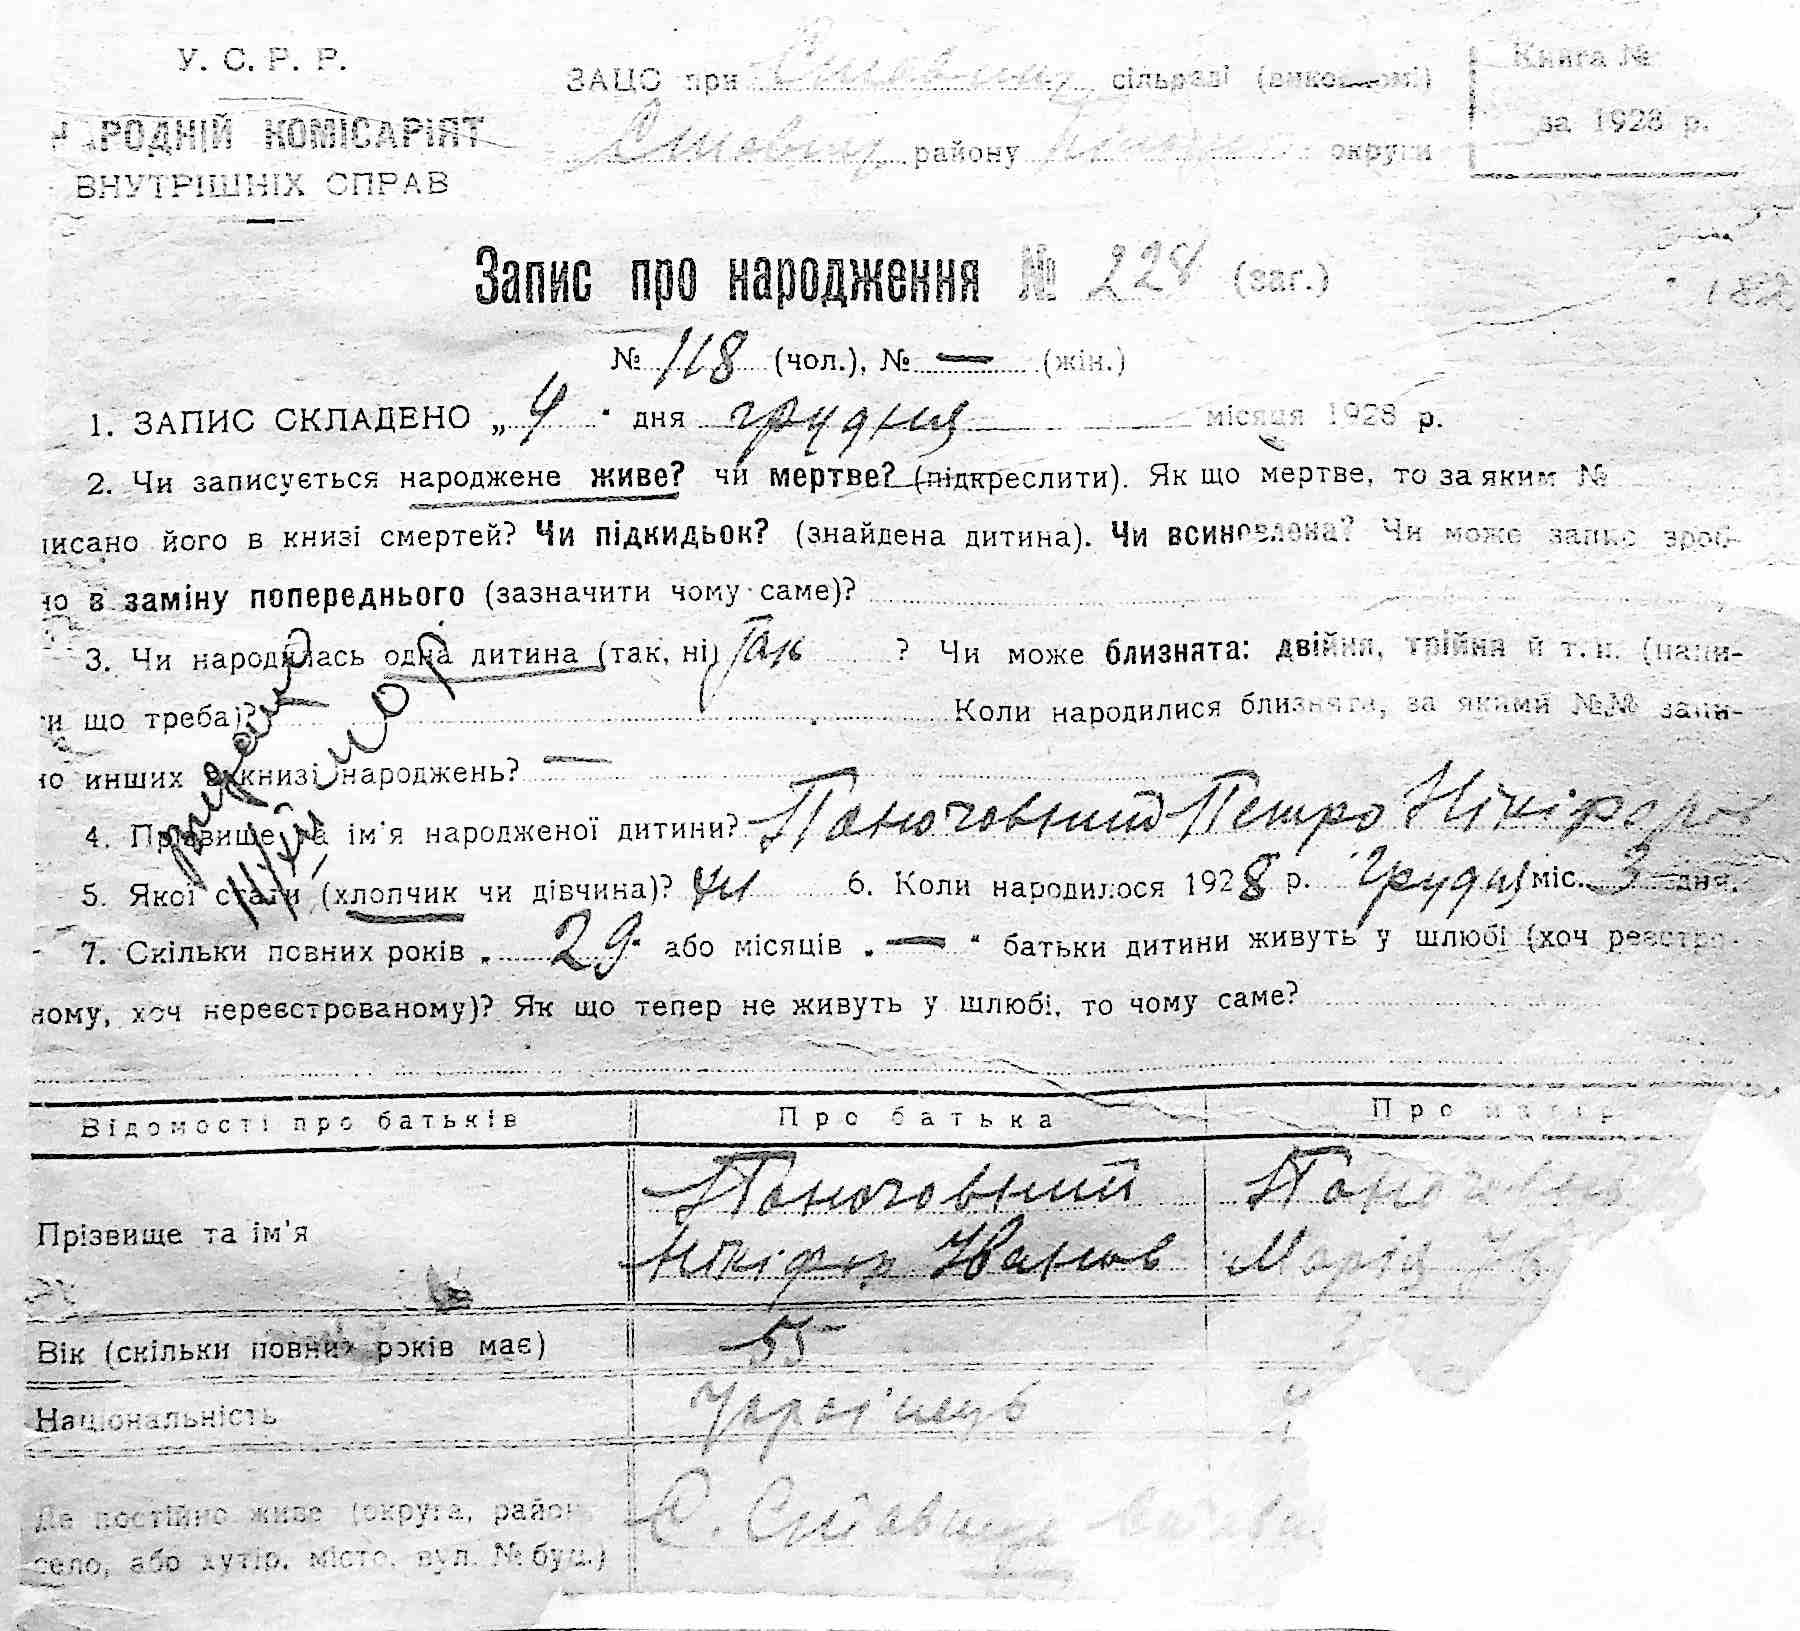 У. С. Р. Р.
НАРОДНІЙ КОМІСАРІЯТ
ВНУТРІШНІХ СПРАВ
ЗАЦС при Ставищ сільраді (виконкомі)
Ставищ району округи
Книга №
за 1928 р.
Запис про народження № 228 (заг.)
№ 118 (чол.), № — (жін.)
1. ЗАПИС СКЛАДЕНО „ 4 " дня грудня місяця 1928 р.
2. Чи записується народжене живе? чи мертве? (підкреслити). Як що мертве, то за яким №
писано його в книзі смертей? Чи підкидьок? (знайдена дитина). Чи всиновлена? Чи може запис зроб-
но в заміну попереднього (зазначити чому саме)?
3. Чи народилась одна дитина (так, ні) Так ? Чи може близнята: двійня, трійня й т. и. (напи-
ти що треба)? Коли народилися близнята, за якими №№ запи-
но инших в книзі народжень? —
4. Прізвище та ім'я народженої дитини? Паночовний Петро Нікіфоров
5. Якої стати (хлопчик чи дівчина)? чл 6. Коли народилося 1928 р. Грудня міс. 3 дня.
7. Скільки повних років „ 29 " або місяців „ — " батьки дитини живуть у шлюбі (хоч реєстро-
ному, хоч нереєстрованому)? Як що тепер не живуть у шлюбі, то чому саме?
Відомості про батьків Про батька Про матір
Прізвище та ім'я
Паночовний
Нікіфор Іванов
Марія
Вік (скільки повних років має) 55
Національність Україінець
Де постійно живе (округа, район,
село, або хутір, місто, вул. № буд.)
С. Ставище